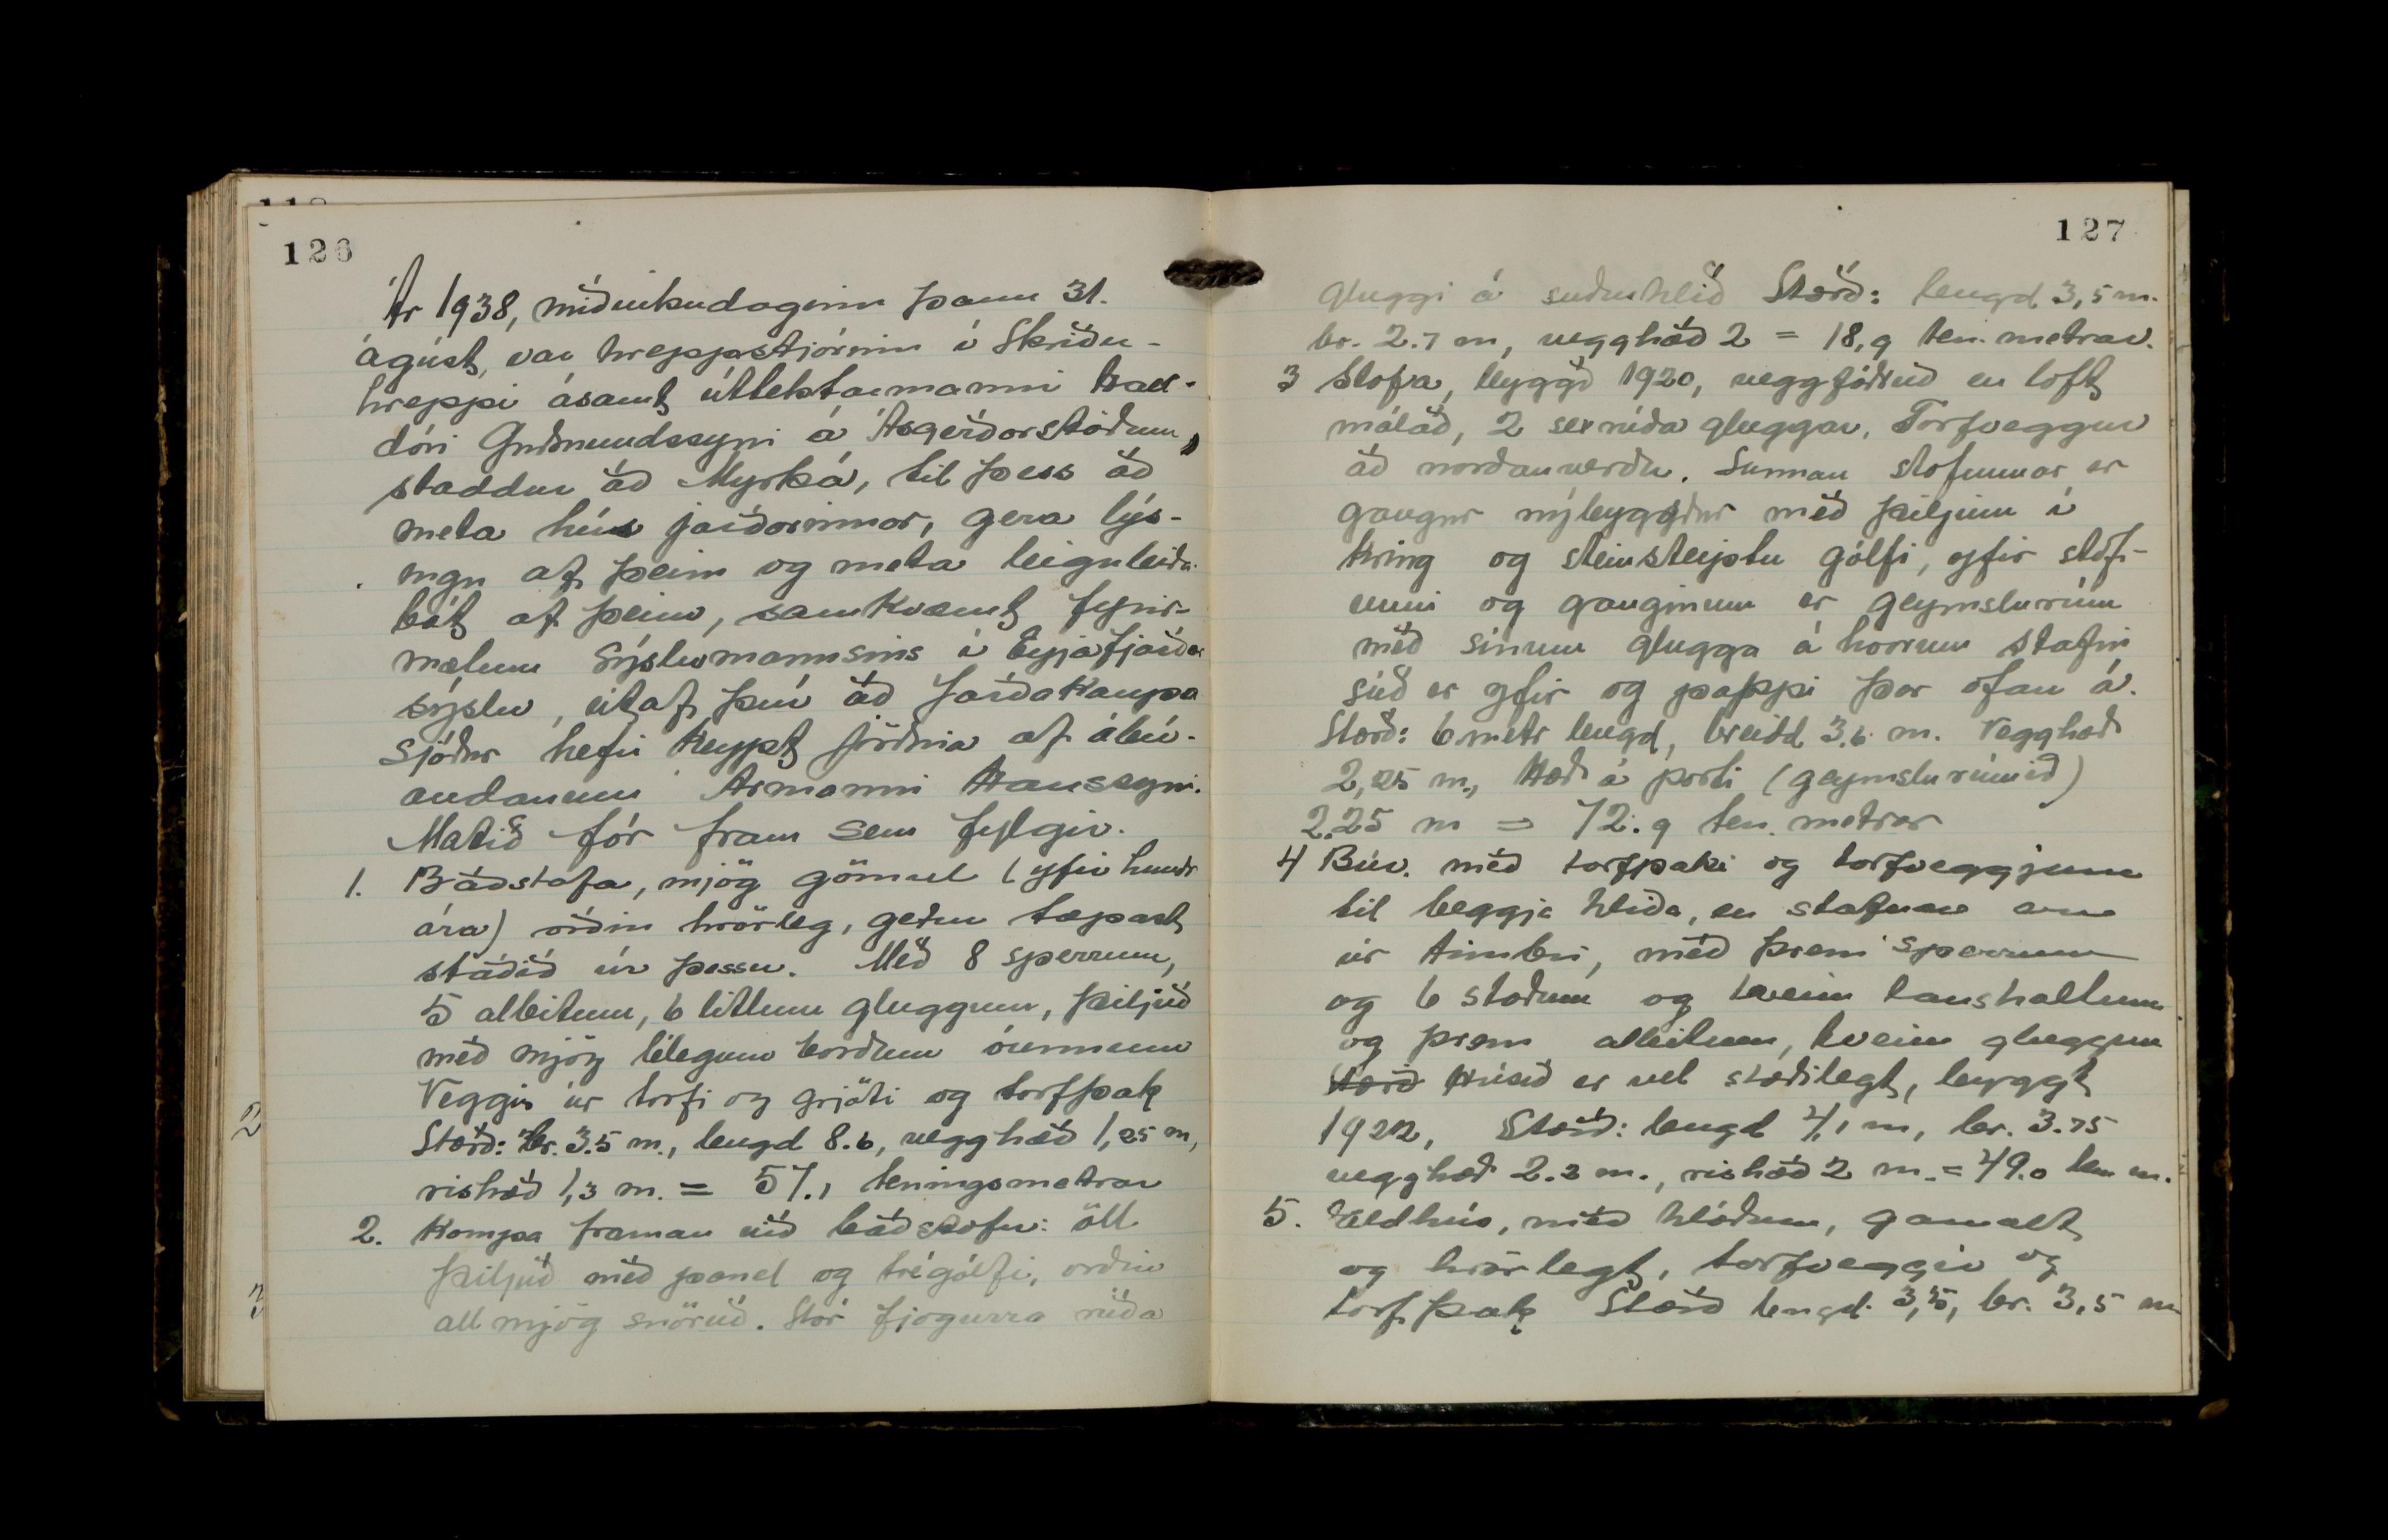 126
Ár 1938, miðvikudaginn þann 31.
ágúst, var hreppstjórinn í Skriðu-
hreppi ásamt úttektarmanni Hall-
dóri Guðmundssyni á Ásgerðarstöðum,
staddur að Myrká, til þess að
meta hús jarðarinnar, gera lýs-
ingu af þeim og meta leiguleiða
bót af þeim, samkvæmt fyrir-
mælum Sýslumannsins í Eyjafjarðar
sýslu, útaf því að Jarðakaupa
sjóður hefir keypt jörðina af ábú-
andanum Ármanni Hanssyni.
Matið fór fram sem fylgir.
1. Baðstofa, mjög gömul (yfir hundr
ára) orðin hrörleg, getur tæpast
staðið úr þessu. Með 8 sperrum,
5 allbitum, 6 litlum gluggum, þiljuð
með mjög lélegum borðum óunnum
Veggir úr torfi og grjóti og torfþak
Stærð: br. 3.5 m., lengd 8.6, vegghæð 1,25 m,
rishæð 1,3 m. = 57.1 teningsmetrar
2. Kompa framan við baðstofu: öll
þiljuð með panel og trégólfi, orðin
all mjög snöruð. Stór fjogurra rúða
127
gluggi á suðurhlið Stærð: lengd 3,5 m.
br. 2.7 m, vegghæð 2 = 18,9 ten. metrar.
3 Stofa, byggð 1920, veggfóðruð en loft
málað, 2 sexrúða gluggar. Torfveggur
að norðanverðu. Sunnan stofunnar er
gangur nýbyggður með þiljum í
kring og steinsteyptu gólfi, yfir stof-
unni og ganginum er geymslurúm
með sínum glugga á hvorum stafni
súð er yfir og pappi þar ofan á.
Stærð: 6 metr lengd, breidd 3.6 m. Vegghæð
2,25 m., Hæð á porti (geymslurúmið)
2.25 m = 72.9 ten. metrar
4 Búr. með torfþaki og torfveggjum
til beggja hliða, en stafnar
úr timbri, með þrem sperrum
og 6 stoðum og tveim lausholtum
og þrem allbitum, tveim gluggum
Stærð Húsið er vel stæðilegt, byggt
1922, Stærð: lengd 4,1 m, br. 3.75
vegghæð 2.2 m., rishæð 2 m. = 49.0 ten m.
5. Eldhús, með hlóðum, gamalt
og hrörlegt, torfveggir og
torfþak Stærð lengd 3,5, br. 3,5 m